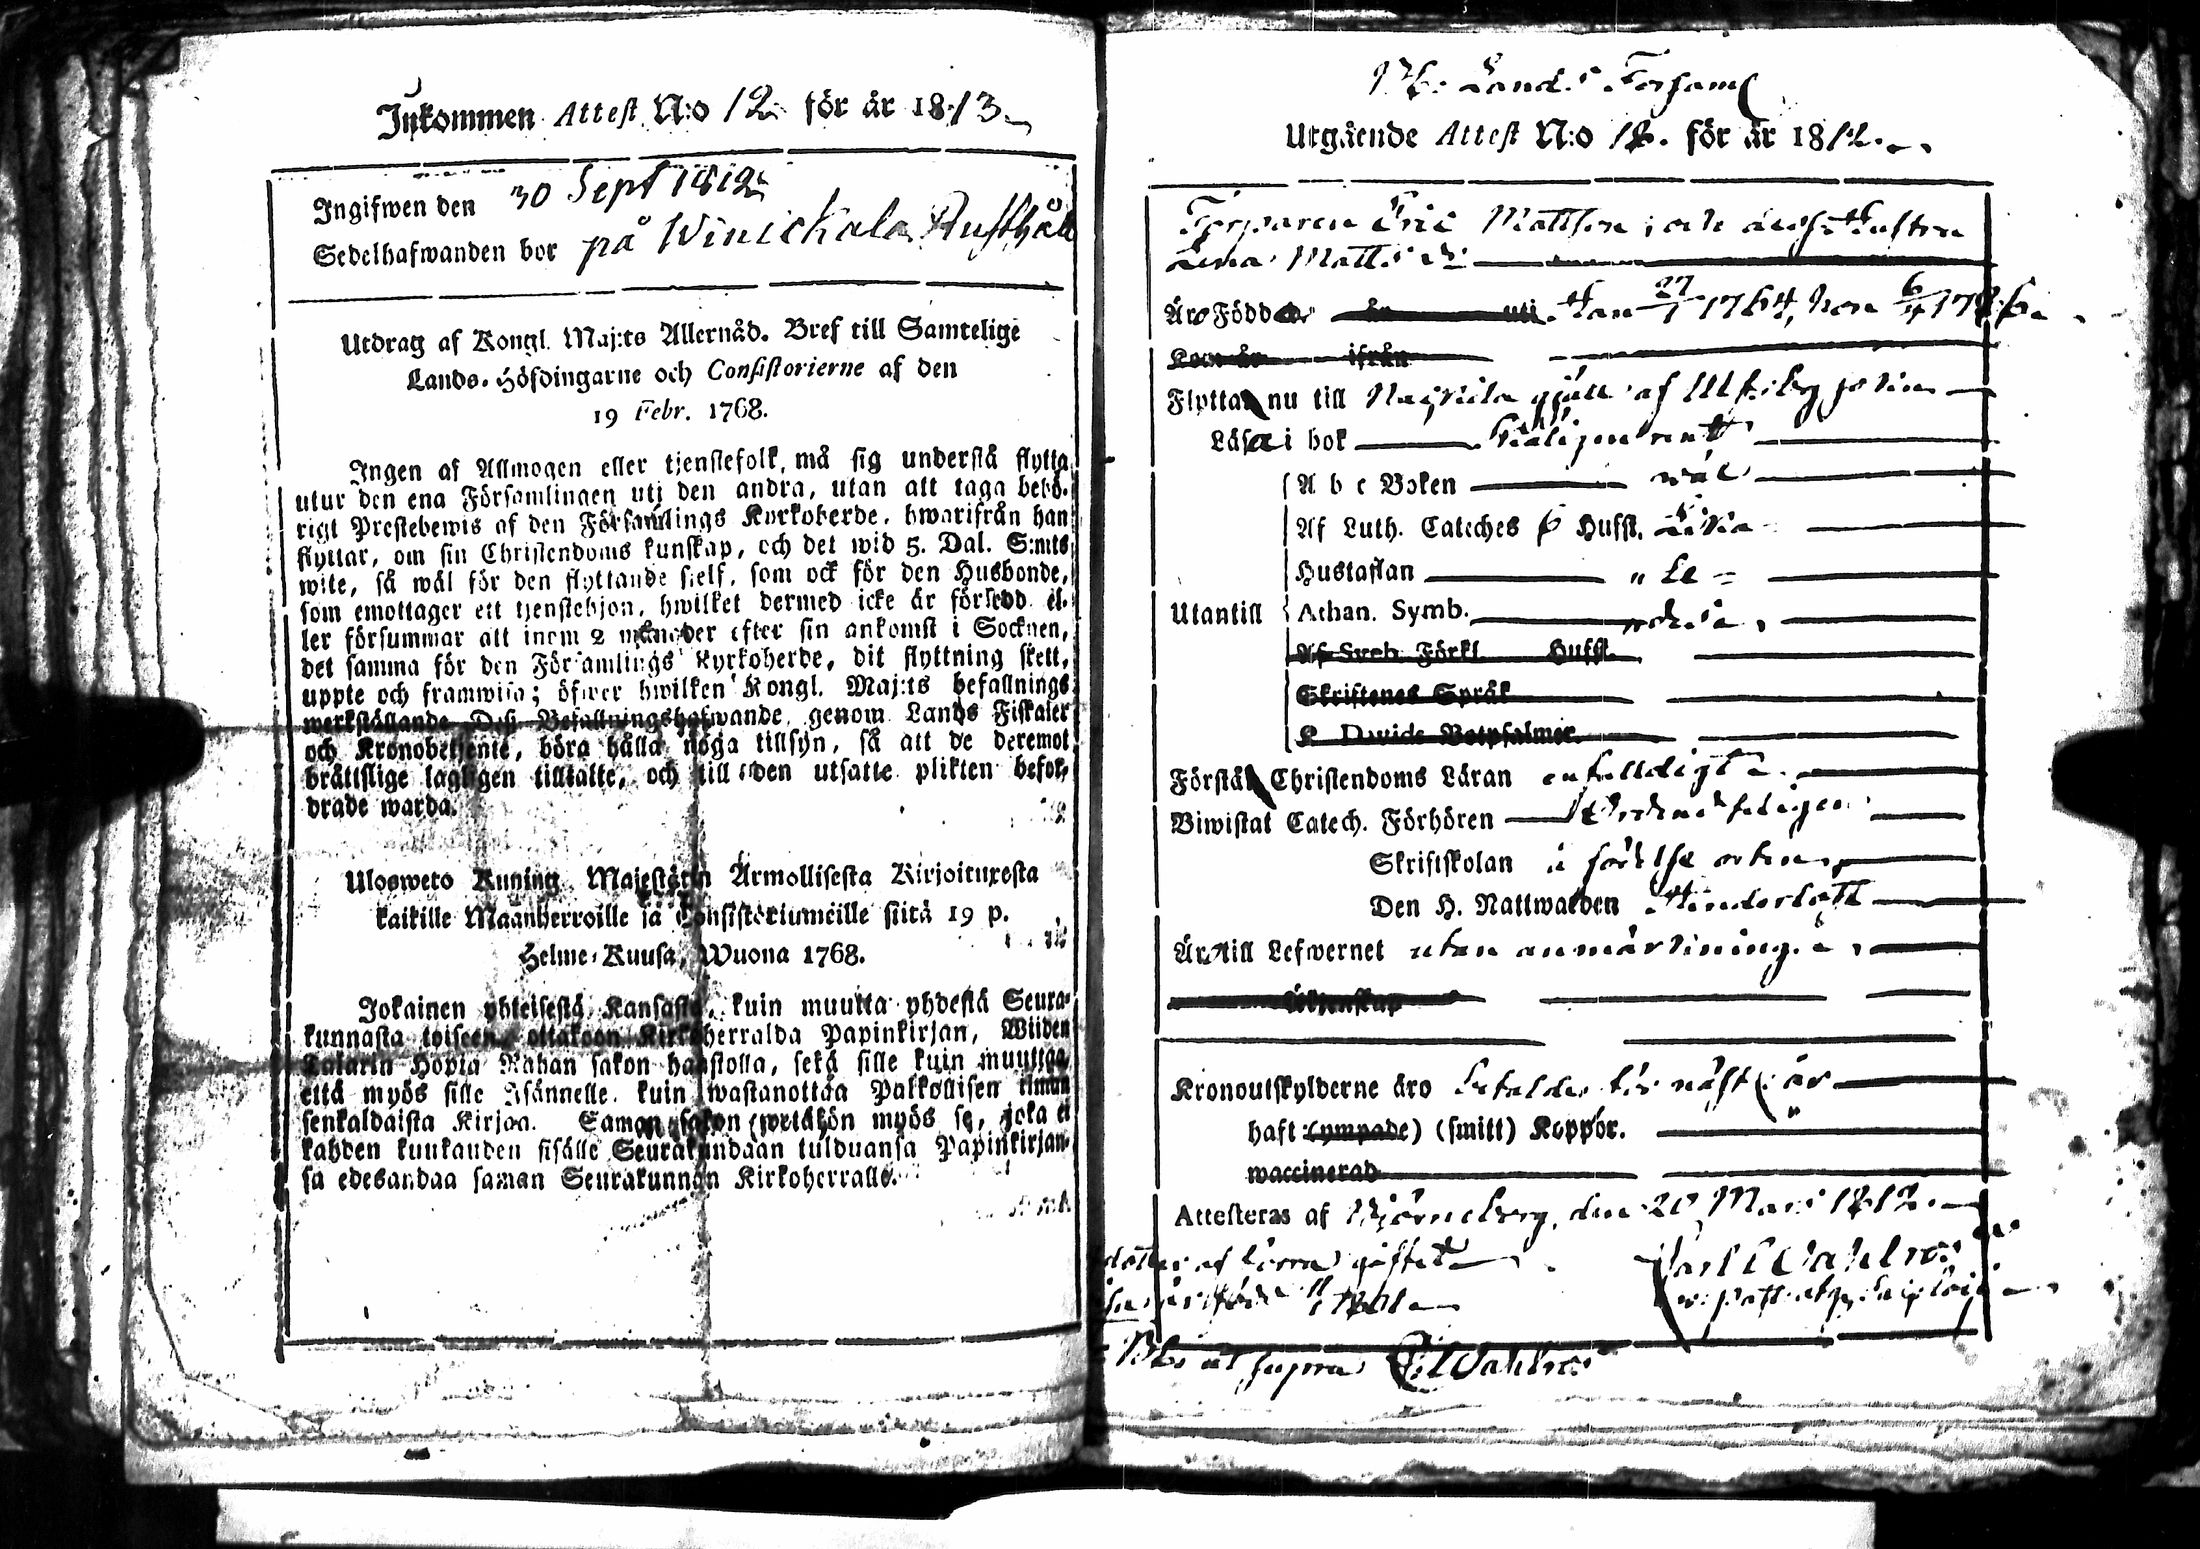 Inkommen Attest N:o 12 för år 1813
Ingifwen den 30 Sept 1812
Sedelhafwanden bor på Winickala Rusthåll
Utdrag af Kongl. Maj:ts Allernåd. Bref till Samtelige
Lands-Höfdingarne och Consistorierne af den
19 Febr. 1768.
Ingen af Allmogen eller tjenstefolk, må sig understå flytta
utur den ena Församlingen uti den andra, utan att taga behö-
rigt Prestebewis af den Församlings Kyrkoherde, hwarifrån han
flyttar, om sin Christendoms kunskap, och det wid 5. Dal. S:mts
wite, så wäl för den flyttande sielf, som ock för den Husbonde,
som emottager ett tjenstehjon, hwilket dermed icke är försedd el-
ler försummar att inom 2 månader efter sin ankomst i Socknen,
det samma för den Församlings Kyrkoherde, dit flyttning skett,
uppte och framwisa; öfwer hwilken Kongl. Maj:ts befallnings
werkställande Deß Befallningshafwande genom Lands Fiskaler
och Kronobetjente, böra hålla noga tillsyn, så att de deremot
brättslige lagligen tilltalte, och till den utsatte plikten befor-
drade warda.
Ulosweto Kuning. Majestätin Armollisesta Kirjoituxesta
kaikille Maanherroille ja Consistoriumeille siitä 19 p.
Helme-Kuusa, Wuona 1768.
Jokainen yhteisestä Kansasta, kuin muutta yhdestä Seura-
kunnasta toiseen, ottakoon Kirkoherralda Papinkirjan, Wiiden
Talarin Hopia Rahan sakon haastolla, sekä sille kuin muuttaa,
että myös sille Isännelle, kuin wastanottaa Palkollisen ilman
senkaldaista Kirjaa. Saman sakon wetäkön myös se, joka ei
kahden kuukauden sisälle Seurakundaan tulduansa Papinkirjan-
sa edesandaa saman Seurakunnan Kirkoherralle.
Lands Församl
Utgående Attest N:o 12. för år 1812.
Torparen Eric Mattsson, och dess Hustru
Lena Matts dr
Äro Födde år uti Han 27/1 1764, hon 6/4
Kom år ifrån
Flytta nu till af Ulfsby sokn
Läsa i bok
A b c Boken wäl
Af Luth. Catches 6 Hufst. lika
Hustaflan
Utantill Athan. Symb.
Af Sveb. Förkl. Hufst.
Skriftenes Språk
K. Davids Botpsalmer.
Förstå Christendoms Läran enfaldigt
Biwistat Catech. Förhören
Skriftskolan
Den H. Nattwarden Hinderlöst
Äro till Lefwernet utan anmärkning.
Äktenskap
Kronoutskylderne äro betalde för näst. år
haft (ympade) (smitt) Koppor.
waccinerad
Attesteras af Björneborg, den 20 Mars 1812.
Carl Wahlroos
ut supra Wahlroos